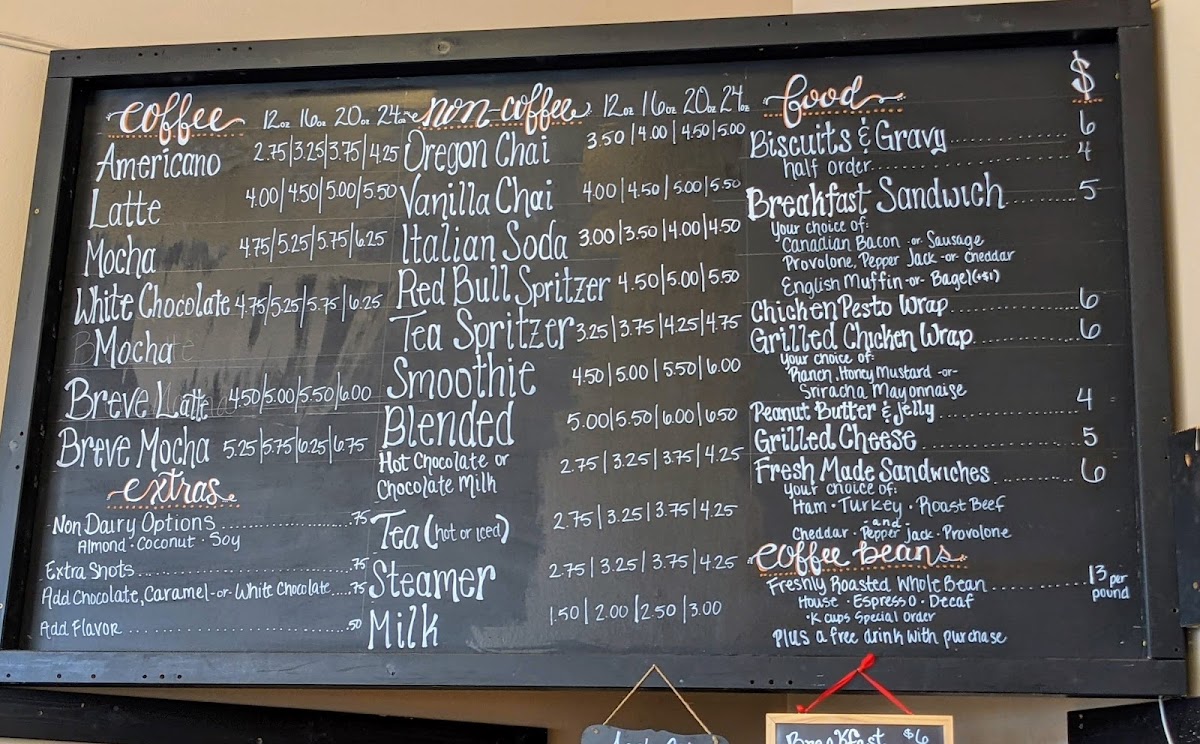 coffee 12oz 16oz 20oz 24oz
Americano 2.75|3.25|3.75|4.25
Latte 4.00|4.50|5.00|5.50
Mocha 4.75|5.25|5.75|6.25
White Chocolate 4.75|5.25|5.75|6.25
Mocha
Breve Latte 4.50|5.00|5.50|6.00
Breve Mocha 5.25|5.75|6.25|6.75
extras
Non Dairy Options .75
Almond · Coconut · Soy
Extra Shots .75
Add Chocolate, Caramel -or- White Chocolate .75
Add Flavor .50
non-coffee 12oz 16oz 20oz 24oz
Oregon Chai 3.50|4.00|4.50|5.00
Vanilla Chai 4.00|4.50|5.00|5.50
Italian Soda 3.00|3.50|4.00|4.50
Red Bull Spritzer 4.50|5.00|5.50
Tea Spritzer 3.25|3.75|4.25|4.75
Smoothie 4.50|5.00|5.50|6.00
Blended 5.00|5.50|6.00|6.50
Hot Chocolate or 2.75|3.25|3.75|4.25
Chocolate Milk
Tea (hot or iced) 2.75|3.25|3.75|4.25
Steamer 2.75|3.25|3.75|4.25
Milk 1.50|2.00|2.50|3.00
food $
Biscuits & Gravy 6
half order 4
Breakfast Sandwich 5
Your choice of:
Canadian Bacon -or- Sausage
Provolone, Pepper Jack -or- Cheddar
English Muffin -or- Bagel (+$1)
Chicken Pesto Wrap 6
Grilled Chicken Wrap 6
Your choice of:
Ranch, Honey Mustard -or-
Sriracha Mayonnaise
Peanut Butter & Jelly 4
Grilled Cheese 5
Fresh Made Sandwiches 6
Your choice of:
Ham · Turkey · Roast Beef
-and-
Cheddar · Pepper Jack · Provolone
coffee beans
Freshly Roasted Whole Bean 13 per pound
House · Espresso · Decaf
·K cups Special Order
Plus a free drink with purchase
Breakfast $6